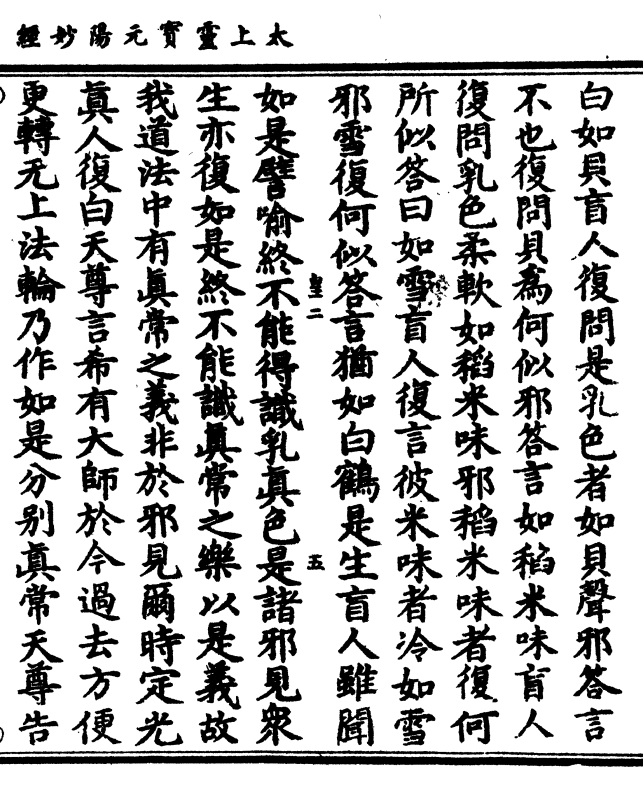 太上靈寶元陽妙經
白如貝盲人復問是乳色者如貝聲邪答言
不也復問貝為何似邪答言如稻米味盲人
復問乳色柔軟如稻米味邪稻米味者復何
所似答曰如雪盲人復言彼米味者冷如雪
邪雪復何似答言猶如白鶴是生盲人雖聞
皇二
五
如是譬喻終不能得識乳真色是諸邪見衆
生亦復如是終不能識真常之樂以是義故
我道法中有真常之義非於邪見爾時定光
真人復白天尊言希有大師於今過去方便
更轉无上法輪乃作如是分别真常天尊告